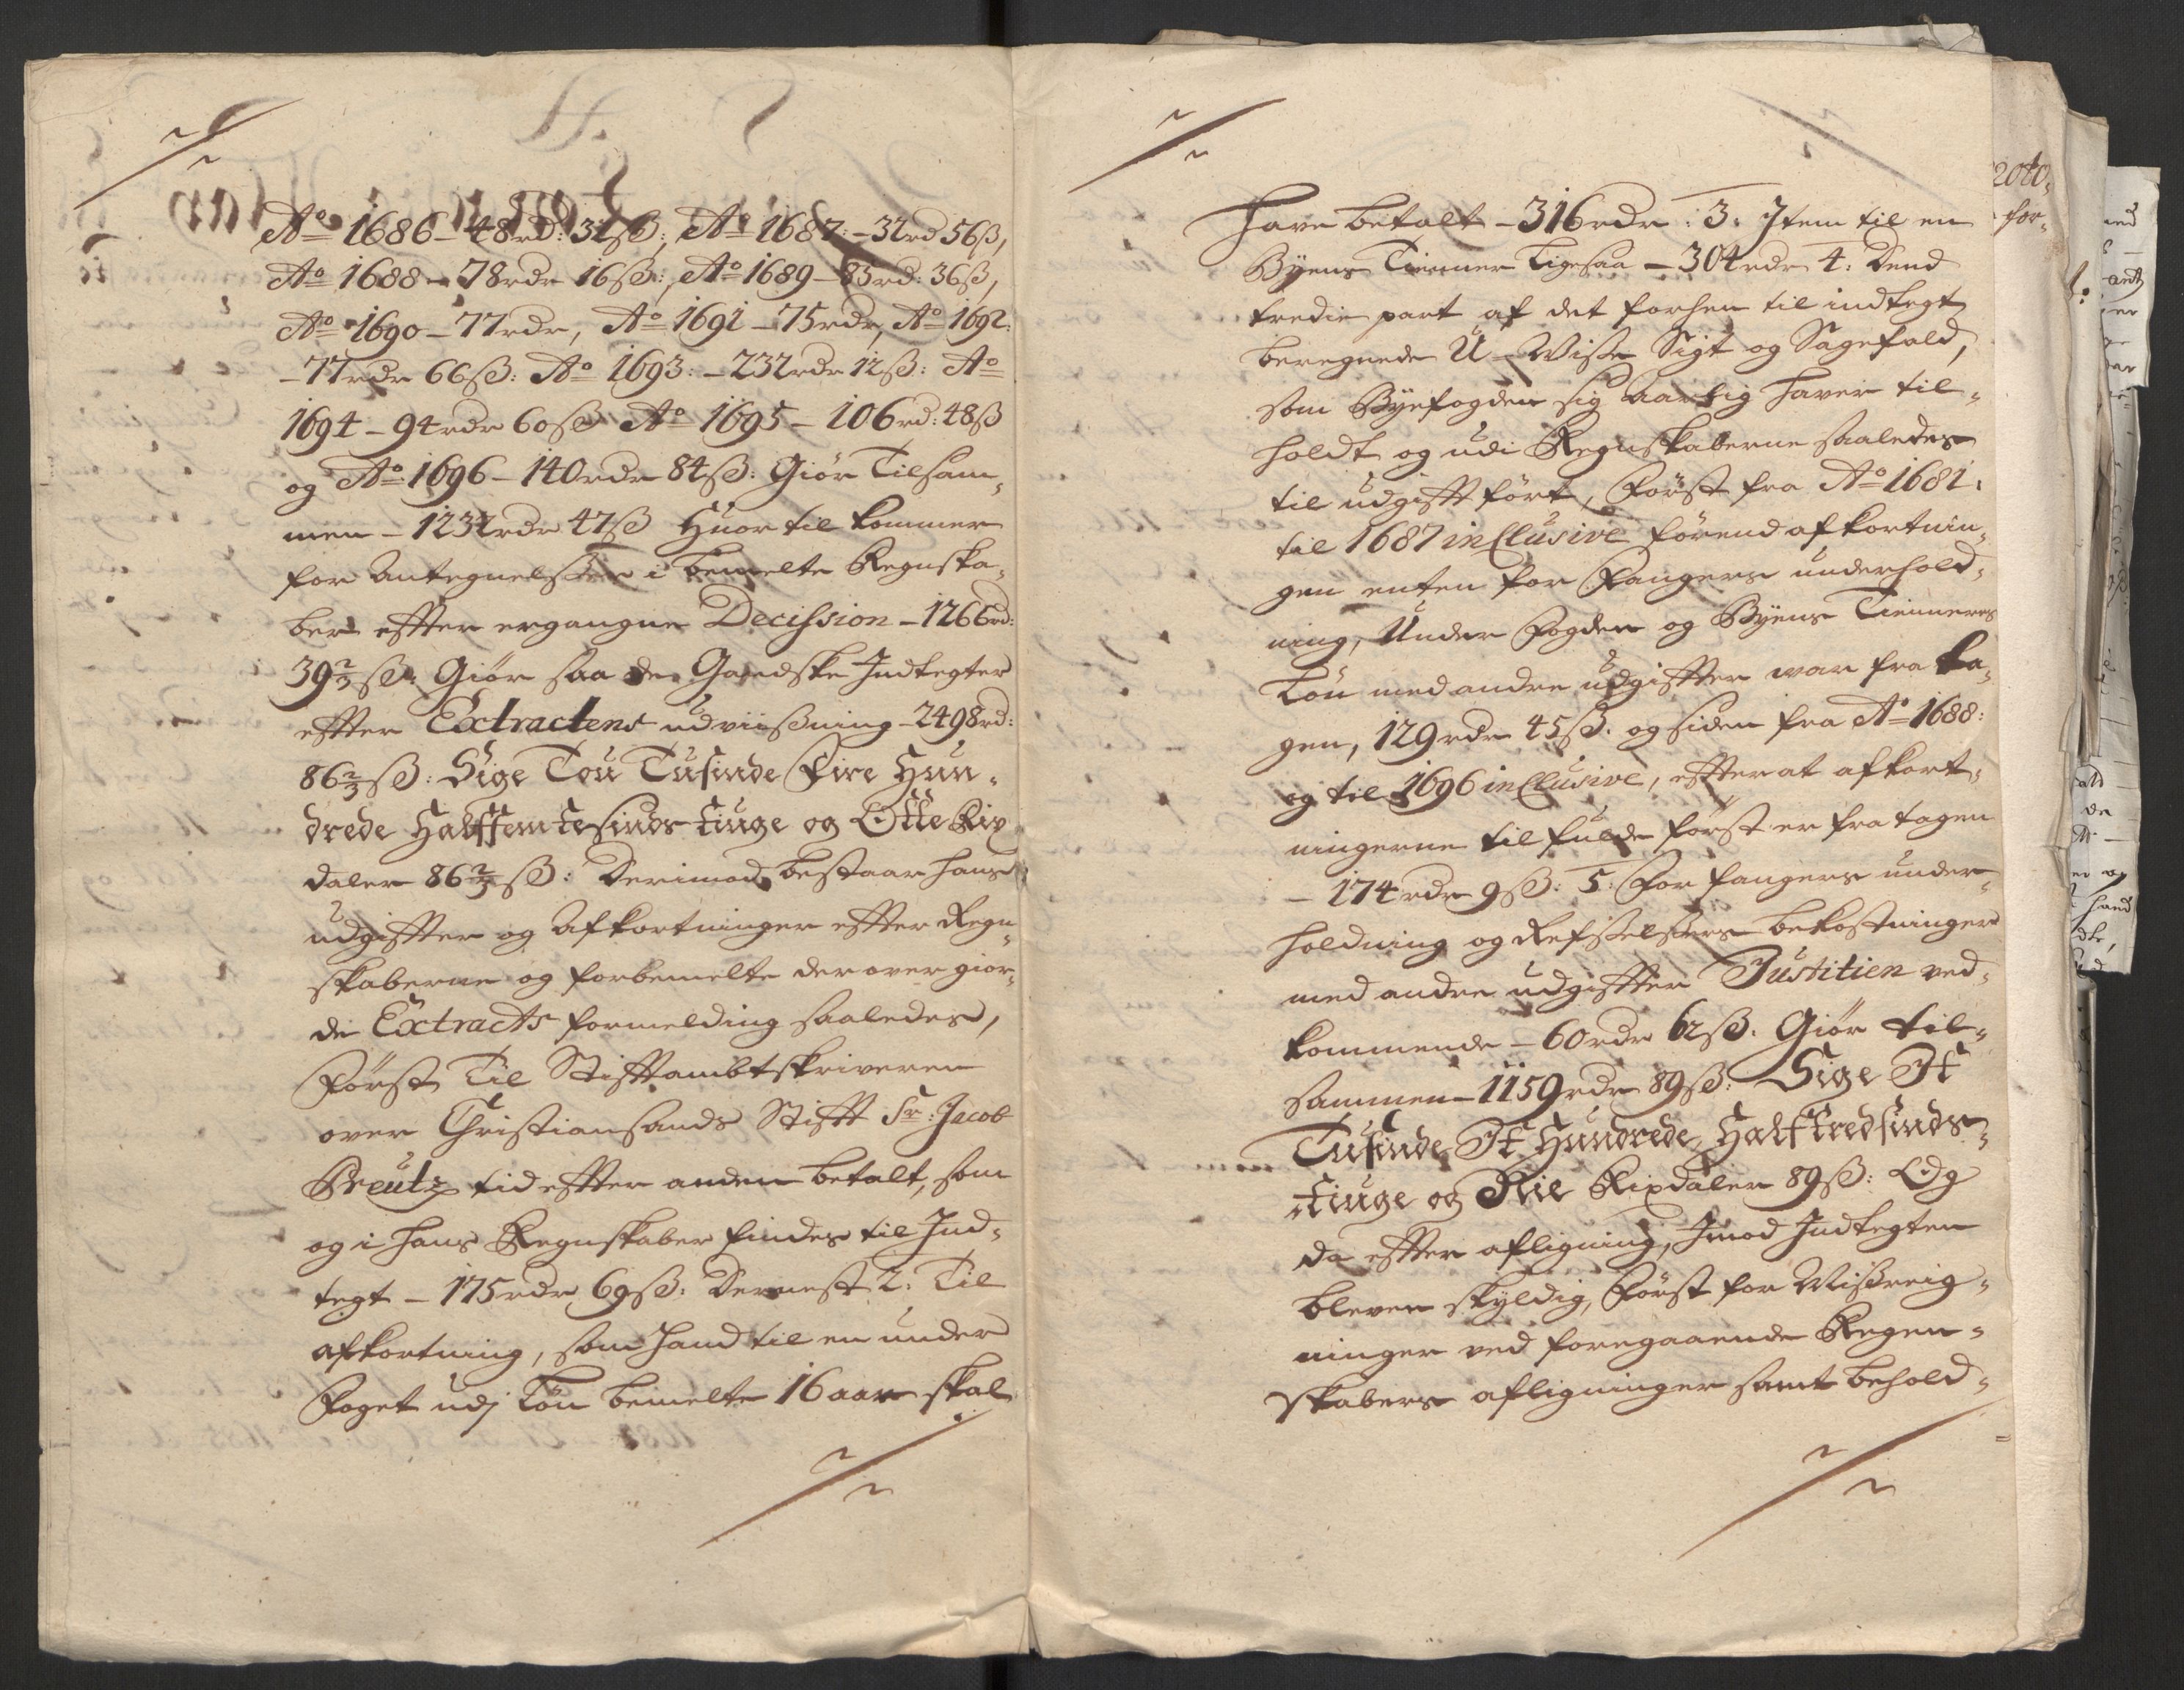 Ao 1686 – 48 rd: 32 ß:, Ao 1687: – 32 rd 56 ß,
Ao 1688 – 78 rdr 16 ß:, Ao 1689 – 85 rd: 36 ß,
Ao 1690 – 77 rdr, Ao 1691 – 75 rdr, Ao 1692:
– 77 rdr 66 ß: Ao 1693: – 232 rdr 12 ß: Ao
1694 – 94 rdr 60 ß Ao 1695 – 106 rd: 48 ß
og Ao 1696 – 140 rdr 84 ß: Giör Tilsam„
men – 1232 rdr 47 ß Huortil kommer
for Antegnelsser i bemelte Regnska„
ber effter ergangne Decission – 1266 rd:
39 2/3 ß: Giör saa de Gandske Indtegter
effter Extractens udviisning – 2498 rd:
86 2/3 ß: Sige Tou Tusinde Fire Hun„
drede Halffemtesinds tiuge og Otte Rix
daler 86 2/3 ß: Derimod bestaar hans
udgiffter og Afkortninger effter Regn„
skaberne og forbemelte derover gior„
de Extracts formelding saaledes,
Först Til Stifftambtskriveren
over Christiansands Stifft Sr: Jacob
Kreutz tid effter anden betalt, som
og i hans Regnskaber findes til Ind„
tegt – 175 rdr 69 ß: Dernest 2: Til
afkortning, som hand til en under
Foget udj Lön bemelte 16 aar skal
have betalt – 316 rdr: 3: Item til en
Byens Tienner Ligesaa – 304 rdr 4: Dend
tredie part af det forhen til indtegt
beregnede U-Visse Sigt og Sagefald,
som Byefogden sig aarlig haver til„
holdt og udi Regnskaberne saaledes
til udgifft fört, Först fra Ao 1681:
til 1687 inclusive förend afkortnin„
gen enten for Fangers underhold„
ning, Under Fogden og Byens Tienneres
Lön med andre udgiffter var fra ta„
gen, 129 rdr 45 ß: og siden fra Ao 1688:
og til 1696 inclusive, effter at afkort„
ningerne til fulde först er fra tagen
– 174 rdr 9 ß: 5: For fangers under„
holdning og Refsselsers bekostninger
med andre udgiffter Justitien ved„
kommende – 60 rdr 62 ß: Giör til„
sammen – 1159 rdr 89 ß: Sige It
Tusinde It Hundrede Halftredsinds„
tiuge og Nie Rixdaler 89 ß: Og
da effter afligning, Imod Indtegten
bleven skyldig, Först for Misreig„
ninger ved foregaaende Regen„
skabers afligninger samt behold„
for„